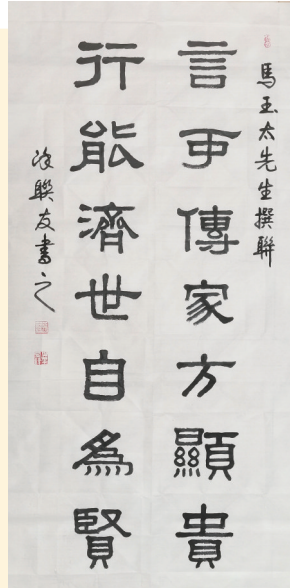 馬玉太先生撰聯
言可傳家方顯貴
行能濟世自為賢
聯友書之